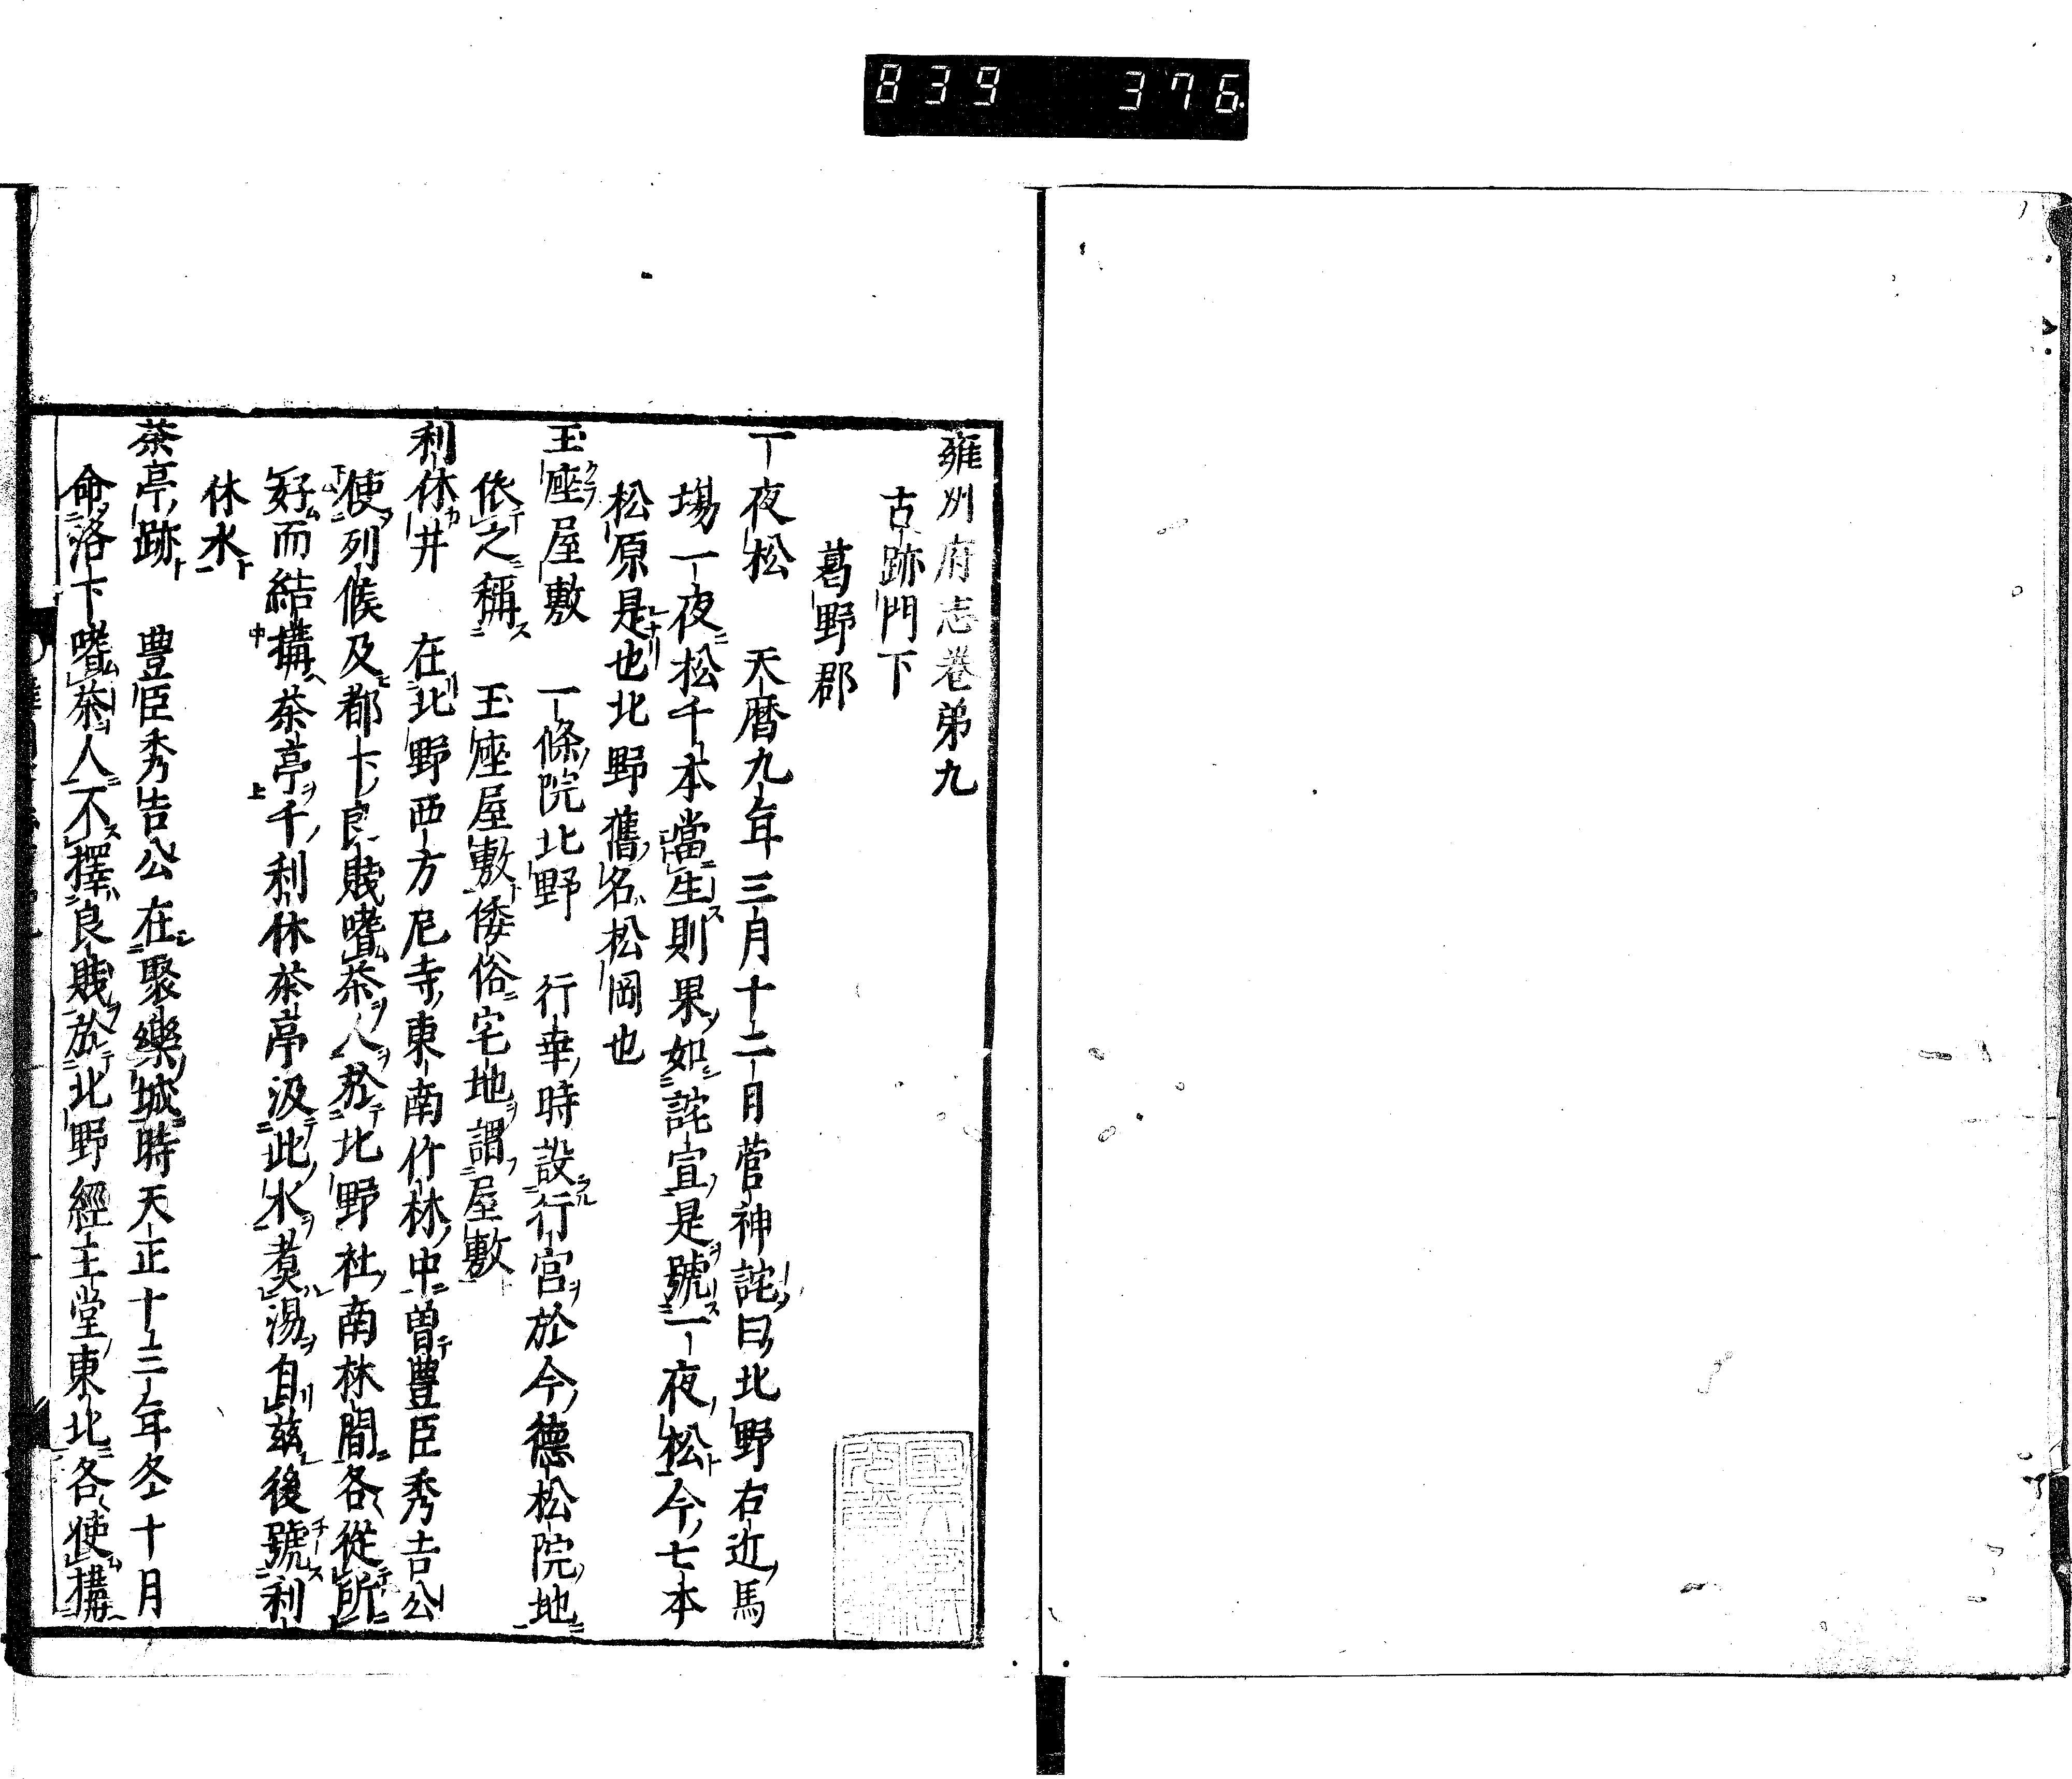 839 376
雍州府志卷第九
古跡門下
葛野郡
一夜松 天暦九年三月十二日菅神詫曰北野右近馬
場一夜松千本當生則果如詫宣是號一夜松今七本
松原是也北野舊名松岡也
玉座屋敷 一條院北野 行幸時設行宮於今德松院地
依之稱 玉座屋敷倭俗宅地謂屋敷
利休井 在北野西方尼寺東南竹林中曽豊臣秀吉公
使列候及都下良賤嗜茶人於北野社南林間各從所
好而結搆茶亭千利休茶亭汲此水煑湯自茲後號利
休水
茶亭跡 豊臣秀吉公在聚樂城時天正十三年冬十月
命洛下嗜茶人不擇良賤於北野經王堂東北各使搆